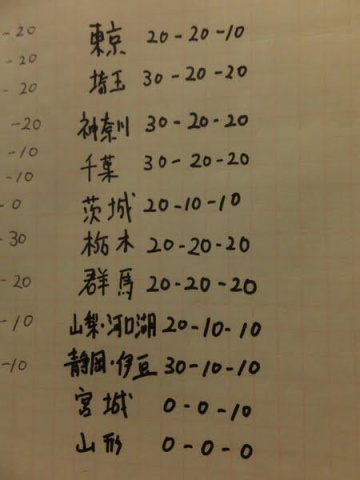 -20
東京 20-20-10
-20
埼玉 30-20-20
-20
-20
神奈川 30-20-20
-10
千葉 30-20-20
-10
-0
茨城 20-10-10
-30
栃木 20-20-20
-20
群馬 20-20-20
-10
山梨・河口湖 20-10-10
-10
静岡・伊豆 30-10-10
宮城 0-0-10
山形 0-0-0